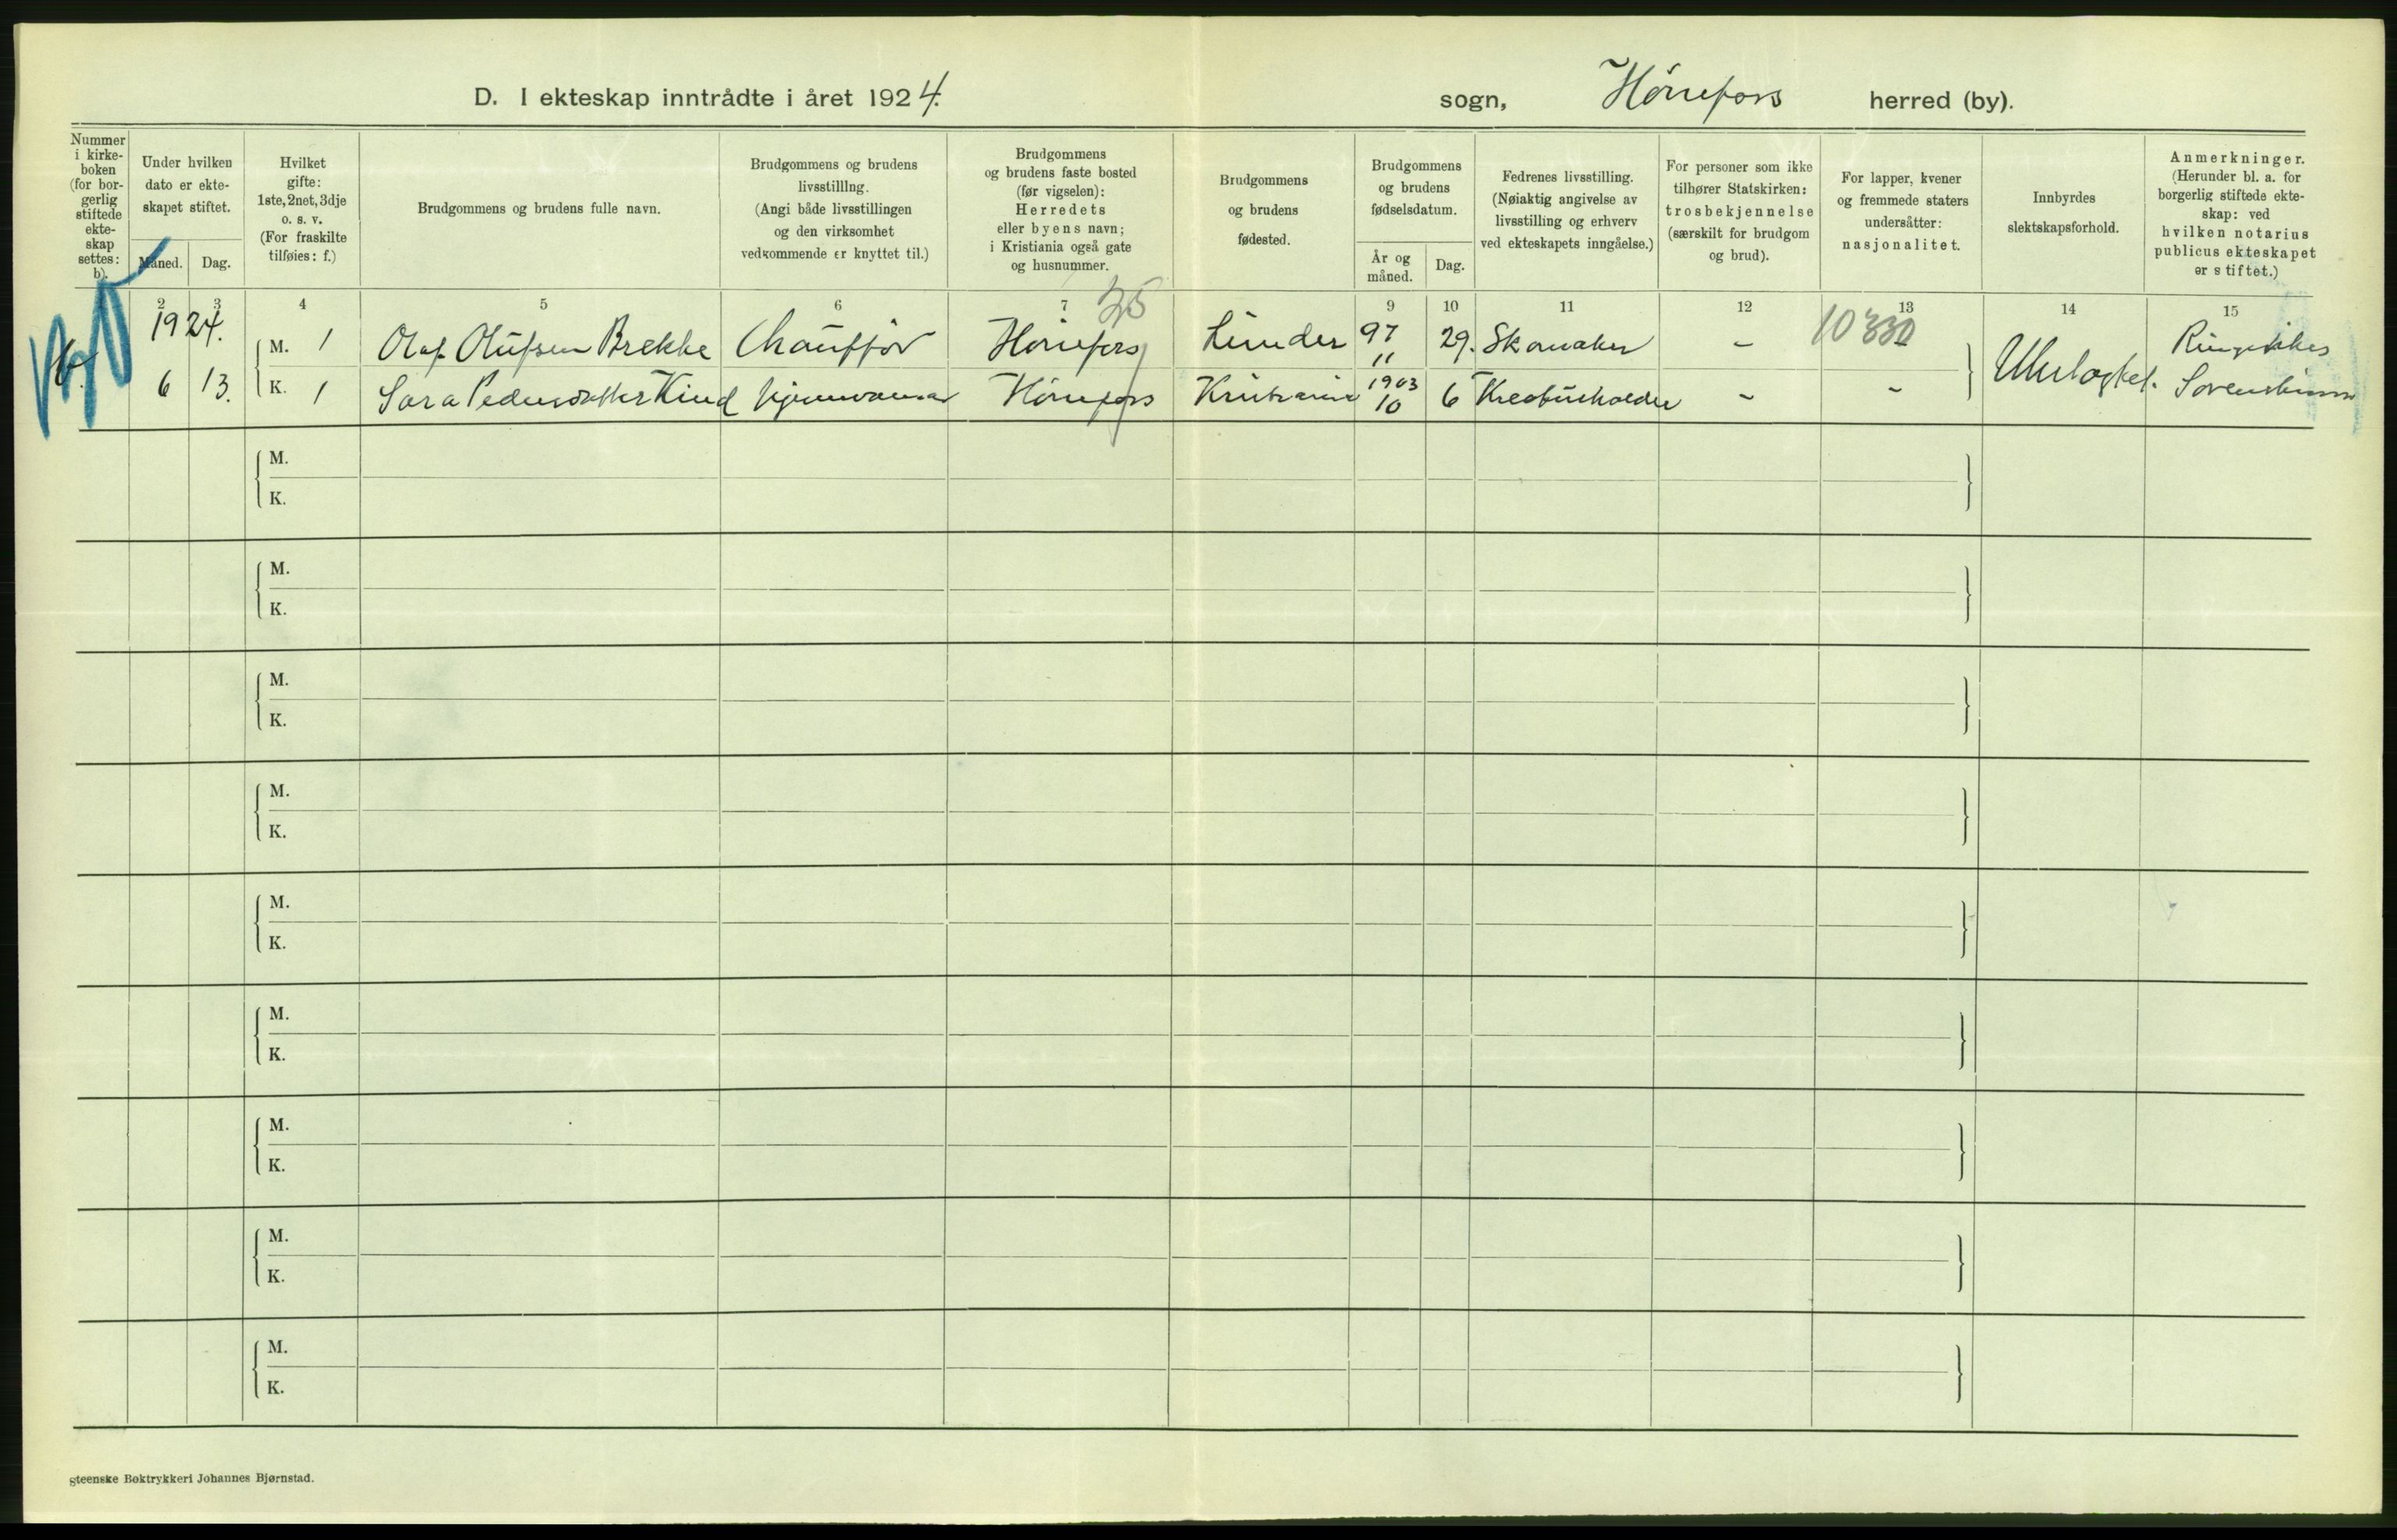 D. I ekteskap inntrådte i året 1924.
sogn, Hønefoss herred (by).
Nummer
i kirke-
boken
(for bor-
gerlig
stiftede
ekte-
skap
settes:
b).
Under hvilken
dato er ekte-
skapet stiftet.
Måned. Dag.
Hvilket
gifte:
1ste, 2net, 3dje
o. s. v.
(For fraskilte
tilføies: f.)
Brudgommens og brudens fulle navn.
Brudgommens og brudens
livsstilling.
(Angi både livsstillingen
og den virksomhet
vedkommende er knyttet til.)
Brudgommens
og brudens faste bosted
(før vigselen):
Herredets
eller byens navn;
i Kristiania også gate
og husnummer.
Brudgommens
og brudens
fødested.
Brudgommens
og brudens
fødselsdatum.
År og
måned.
Dag.
Fedrenes livsstilling.
(Nøiaktig angivelse av
livsstilling og erhverv
ved ekteskapets inngåelse.)
For personer som ikke
tilhører Statskirken:
trosbekjennelse
(særskilt for brudgom
og brud).
For lapper, kvener
og fremmede staters
undersåtter:
nasjonalitet.
Innbyrdes
slektskapsforhold.
Anmerkninger.
(Herunder bl. a. for
borgerlig stiftede ekte-
skap: ved
hvilken notarius
publicus ekteskapet
er stiftet.)
2 3 4 5 6 7 9 10 11 12 13 14 15
1924. M. 1 Olaf Olufsen Brekke Chauffør Hønefoss Lunder 97 11 29. Skomaker - 10330 -
6 13. K. 1 Sara Pedersdatter Kind Hønefoss Kristiania 1903 10 6 -  -
Ringerikes
M.
K.
M.
K.
M.
K.
M.
K.
M.
K.
M.
K.
M.
K.
M.
K.
M.
K.
gteenske Boktrykkeri Johannes Bjørnstad.